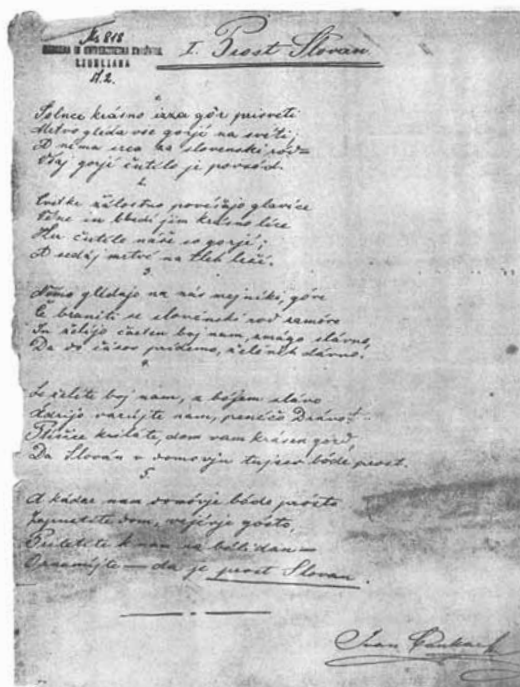 Ms 818
LJUBLJANA
I. Prost Slovan.
Solnce krásno izza gór prisveti
Mrtvo gléda vse gorjé na svéti;
O néma srca za slovenski ród
gorjé čutilo je povsód.
2.
Cvetke žalostno povéšajo glavice
in bledi jim krásno lice
čutilo náše so gorjé;
O sedaj mrtvé na tleh ležé.
3.
Némo glédajo na nás mejniki, góre
Če braniti se slovénski rod zamóre
In želijo časten boj nam, zmágo slávno,
Da do čásov pridemo, želénih dávno!
4.
Če želite boj nam, z bójem slávo
várujte nam, Drávo!
dom vam krásen górd,
Da Slován v domovju tujcev bóde prost.
5.
A kádar nam domóvje bóde prósto
Zapustite dom, vejévje gósto,
Priletite k nam na béli dan —
Oznanujte — da je prost Slovan.
Ivan Cankar